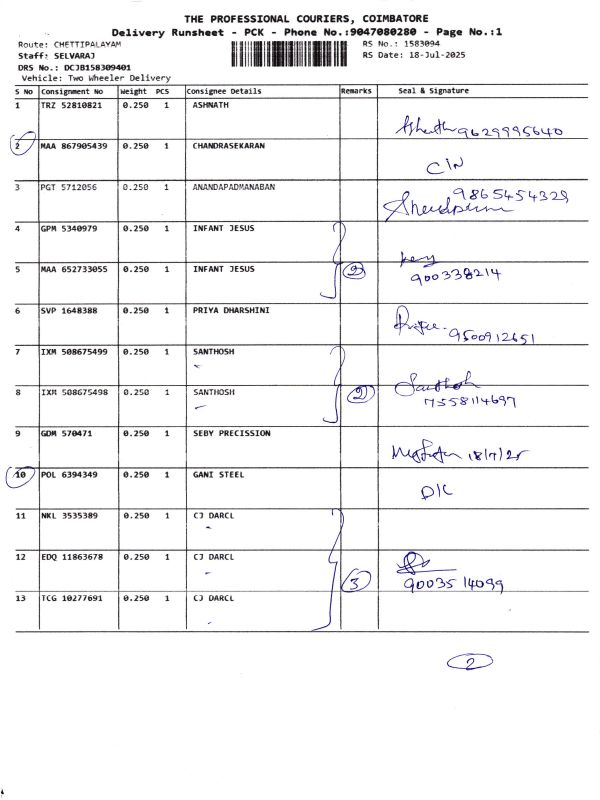 THE PROFESSIONAL COURIERS, COIMBATORE
Delivery Runsheet - PCK - Phone No.:9047080280 - Page No.:1
Route: CHETTIPALAYAM RS No.: 1583094
Staff: SELVARAJ RS Date: 18-Jul-2025
DRS No.: DCJB158309401
Vehicle: Two Wheeler Delivery
S No Consignment No Weight PCS Consignee Details Remarks Seal & Signature
1 TRZ 52810821 0.250 1 ASHNATH
9629995640
2 MAA 867905439 0.250 1 CHANDRASEKARAN
C/N
3 PGT 5712056 0.250 1 ANANDAPADMANABAN
9865454329
4 GPM 5340979 0.250 1 INFANT JESUS
5 MAA 652733055 0.250 1 INFANT JESUS 2
900338214
6 SVP 1648388 0.250 1 PRIYA DHARSHINI
9500912651
7 IXM 508675499 0.250 1 SANTHOSH
8 IXM 508675498 0.250 1 SANTHOSH 2 Santhosh
7558114697
9 GDM 570471 0.250 1 SEBY PRECISSION
18/7/25
10 POL 6394349 0.250 1 GANI STEEL
D/C
11 NKL 3535389 0.250 1 CJ DARCL
12 EDQ 11863678 0.250 1 CJ DARCL
3 9003514099
13 TCG 10277691 0.250 1 CJ DARCL
2